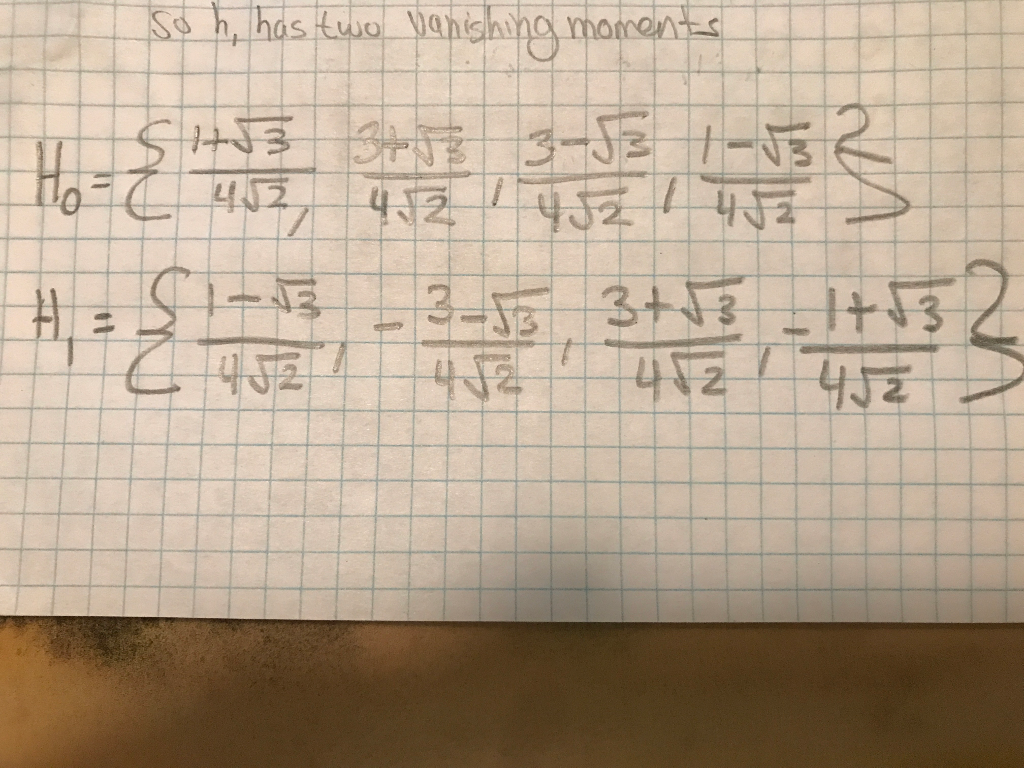 So h, has two vanishing moments
H₀ = { (1+√3)/(4√2), (3+√3)/(4√2), (3-√3)/(4√2), (1-√3)/(4√2) }
H₁ = { (1-√3)/(4√2), -(3-√3)/(4√2), (3+√3)/(4√2), -(1+√3)/(4√2) }